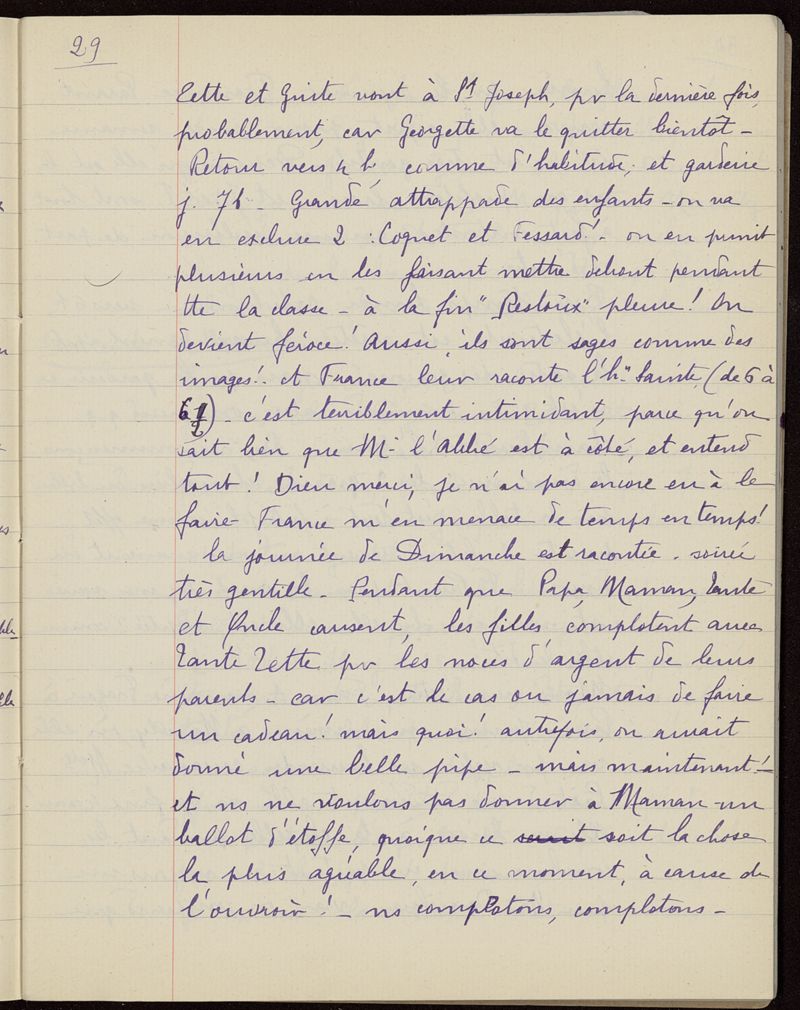 29
Zette et Guite vont à St Joseph, pr la dernière fois,
probablement, car Georgette va le quitter bientôt -
Retour vers 4 h, comme d'habitude, et garderie
j. 7h - Grande attrappade des enfants - on va
en exclure 2 : Coquet et Fessard! - on en punit
plusieurs en les faisant mettre debout pendant
tte la classe - à la fin "Restoux" pleure! On
devient féroce! Aussi, ils sont sages comme des
images!. et France leur raconte l'h" Sainte, (de 6 à
6 1/2) - c'est terriblement intimidant, parce qu'on
sait bien que Mr l'Abbé est à côté, et entend
tout! Dieu merci, je n'ai pas encore eu à le
faire - France m'en menace de temps en temps!
la journée de Dimanche est racontée. soirée
très gentille - Pendant que Papa, Maman, Tante
et Oncle causent, les filles complotent avec
Tante Zette pr les noces d'argent de leurs
parents - car c'est le cas ou jamais de faire
un cadeau! mais quoi! autrefois, on aurait
donné une belle pipe - mais maintenant! -
et ns ne voulons pas donner à Maman un
ballot d'étoffe, quoique ce serait soit la chose
la plus agréable, en ce moment, à cause de
l'ouvroir! - ns complotons, complotons -